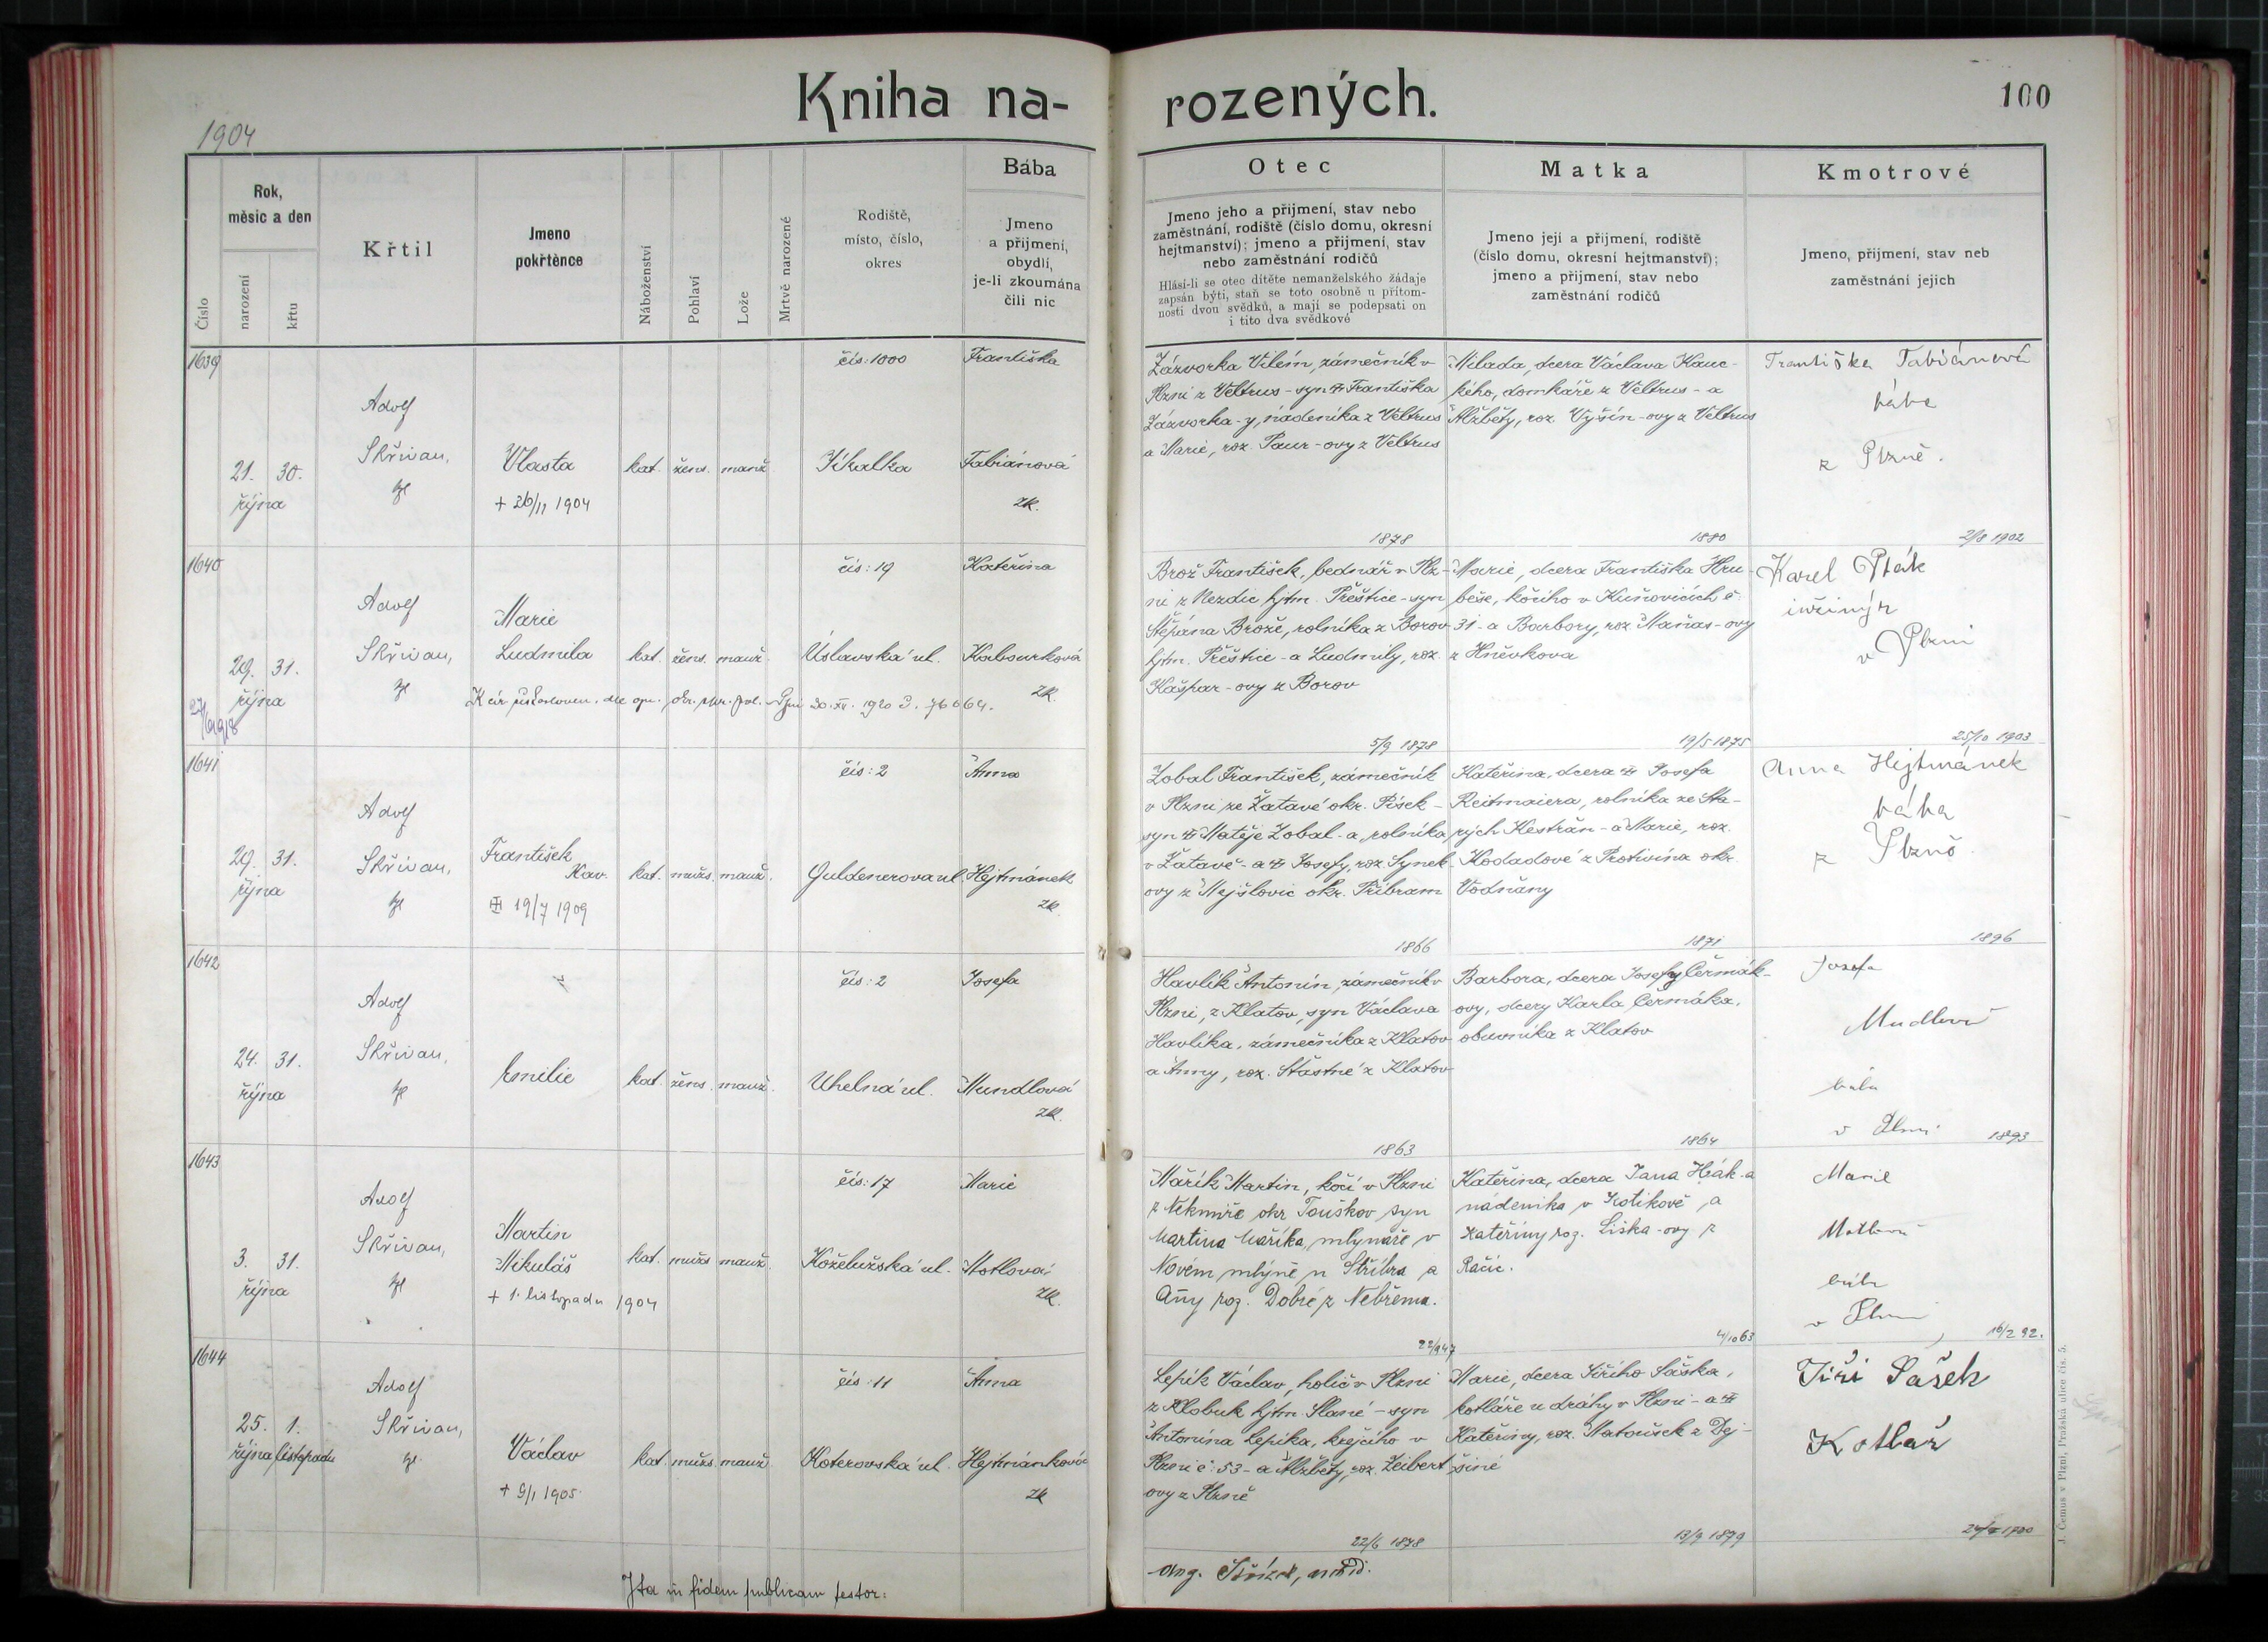 Kniha na-
rozených.
100
1904
Číslo
Rok,
měsíc a den
narození
křtu
Křtil
Jmeno
pokřtěnce
Náboženství
Pohlaví
Lože
Mrtvě narozené
Rodiště,
místo, číslo,
okres
Bába
Jmeno
a přijmení,
obydlí,
je-li zkoumána
čili nic
Otec
Jmeno jeho a přijmení, stav nebo
zaměstnání, rodiště (číslo domu, okresní
hejtmanství); jmeno a přijmení, stav
nebo zaměstnání rodičů
Hlásí-li se otec dítěte nemanželského žádaje
zapsán býti, staň se toto osobně u přítom-
nosti dvou svědků, a mají se podepsati on
i tito dva svědkové
Matka
Jmeno její a přijmení, rodiště
(číslo domu, okresní hejtmanství);
jmeno a přijmení, stav nebo
zaměstnání rodičů
Kmotrové
Jmeno, přijmení, stav neb
zaměstnání jejich
1639
21. 30.
října
Adolf
Skřivan,
Vlasta
+ 26/11 1904
kat. žens. manž.
čís: 1000
Skalka
Františka
Fabiánová
zk.
Zázvorka Vilém, zámečník v
Plzni z Veltrus - syn Františka
Zázvorka-y, nádeníka z Veltrus
a Marie, roz. Paur-ovy z Veltrus
1878
Milada, dcera Václava Kauc-
kého, domkáře z Veltrus - a
Alžběty, roz. Vyšín-ovy z Veltrus
1880
Františka Fabiánová
bába
z Plzně.
2/8 1902
1640
29. 31.
října
Adolf
Skřivan,
Marie
Ludmila
kat. žens. manž.
čís: 19
Úslavská ul.
Kateřina
Kabourková
zk.
Brož František, bednář v Plz-
ni z Nezdic hjtm. Přeštice - syn
Štěpána Brože, rolníka z Borov
hjtm. Přeštice - a Ludmily, roz.
Kašpar-ovy z Borov
5/9 1878
Marie, dcera Františka Hru-
beše, kočího v Kuňovicích č.
31 - a Barbory, roz. Maňas-ovy
z Hněvkova
19/5 1875
Karel Pták
v Plzni
25/10 1903
1641
29. 31.
října
Adolf
Skřivan,
František
Xav.
19/7 1909
kat. mužs. manž.
čís: 2
Guldenerova ul.
Anna
Hejtmánek
zk.
Zobal František, zámečník
v Plzni ze Žatavé okr. Písek -
syn Matěje Zobal-a, rolníka
v Žatavě - a Josefy, roz. Synek-
ovy z Mejšlovic okr. Příbram
1866
Kateřina, dcera Josefa
Reitmaiera, rolníka ze Sta-
rých Kestřan - a Marie, roz.
Kodadové z Protivína okr.
Vodňany
1871
Anna Hejtmánek
bába
z Plzně
1896
1642
24. 31.
října
Adolf
Skřivan,
Emilie
kat. žens. manž.
čís: 2
Uhelná ul.
Josefa
Mundlová
zk.
Havlík Antonín, zámečník v
Plzni, z Klatov, syn Václava
Havlíka, zámečníka z Klatov
a Anny, roz. Šťastné z Klatov
1863
Barbora, dcera Josefy Čermák-
ovy, dcery Karla Čermáka,
obuvníka z Klatov
1864
Josefa
Mudlová
bába
v Plzni
1893
1643
3. 31.
října
Adolf
Skřivan,
Martin
Mikuláš
+ 1. listopadu 1904
kat. mužs. manž.
čís: 17
Koželužská ul.
Marie
Motlová
zk.
Mařík Martin, kočí v Plzni
z Nekmíře okr Touškov syn
Martina Maříka, mlynáře v
Novém mlýně u Stříbra a
Any roz. Dobré z Nebřema.
Kateřina, dcera Jana Hák-a
nádeníka v Kotíkově a
Kateřiny roz. Liška-ovy z
Račic.
4/10 63
Marie
Motlová
bába
v Plzni
16/2 92.
1644
25. 1.
října listopadu
Adolf
Skřivan,
Václav
+ 9/1 1905
kat. mužs. manž.
čís: 11
Koterovská ul.
Anna
Hejtmánková
zk
Lepík Václav, holič v Plzni
z Klobuk hjtm. Slané - syn
Antonína Lepíka, krejčího v
Plzni č: 53 - a Alžběty, roz. Zeibert
ovy z Plzně
22/6 1878
Marie, dcera Jiřího Saška,
kotláře u dráhy v Plzni - a
Kateřiny, roz. Matoušek z Dej-
šiné
13/9 1879
Jiří Sašek
Kotlář
Ita in fidem publicam testor:
J. Čemus v Plzni, Pražská ulice čís. 5.